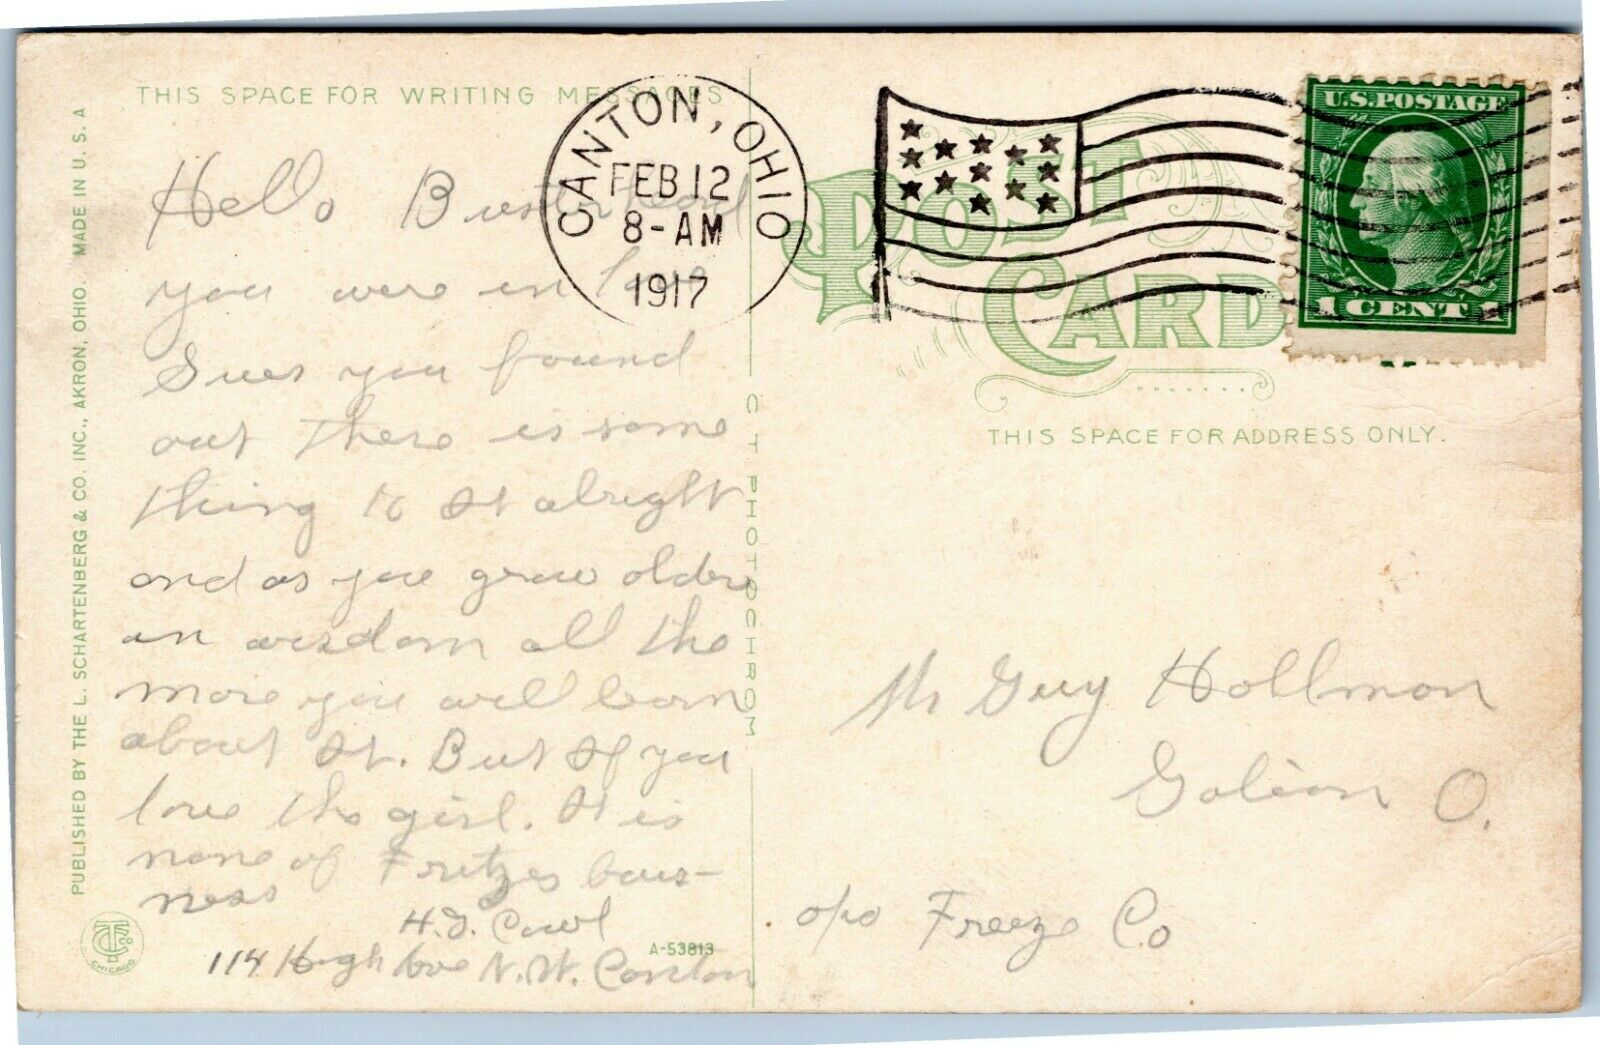 THIS SPACE FOR WRITING MESSAGES
CANTON, OHIO
FEB 12
8-AM
1917
U.S. POSTAGE
1 CENT 1
POST CARD
THIS SPACE FOR ADDRESS ONLY.
Hello Buster
you were in love
Sues you found
out there is some
thing to It alright
and as you grow older
in wisdom all the
more you will learn
about It. But If you
love the girl. It is
none of Fritzes bus-
ness
114 High Ave N.W. Canton
A-53813
C T PHOTOCHROM
Mr Guy Hollmon
Galion O.
c/o Freeze Co
PUBLISHED BY THE L. SCHARTENBERG & CO. INC., AKRON, OHIO. MADE IN U. S. A
CHICAGO